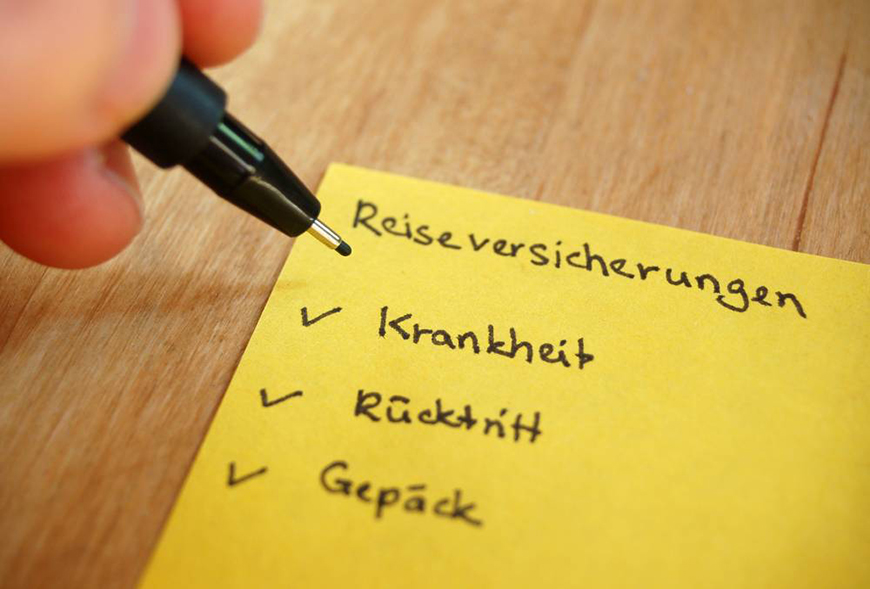 Reiseversicherungen
✓ Krankheit
✓ Rücktritt
✓ Gepäck